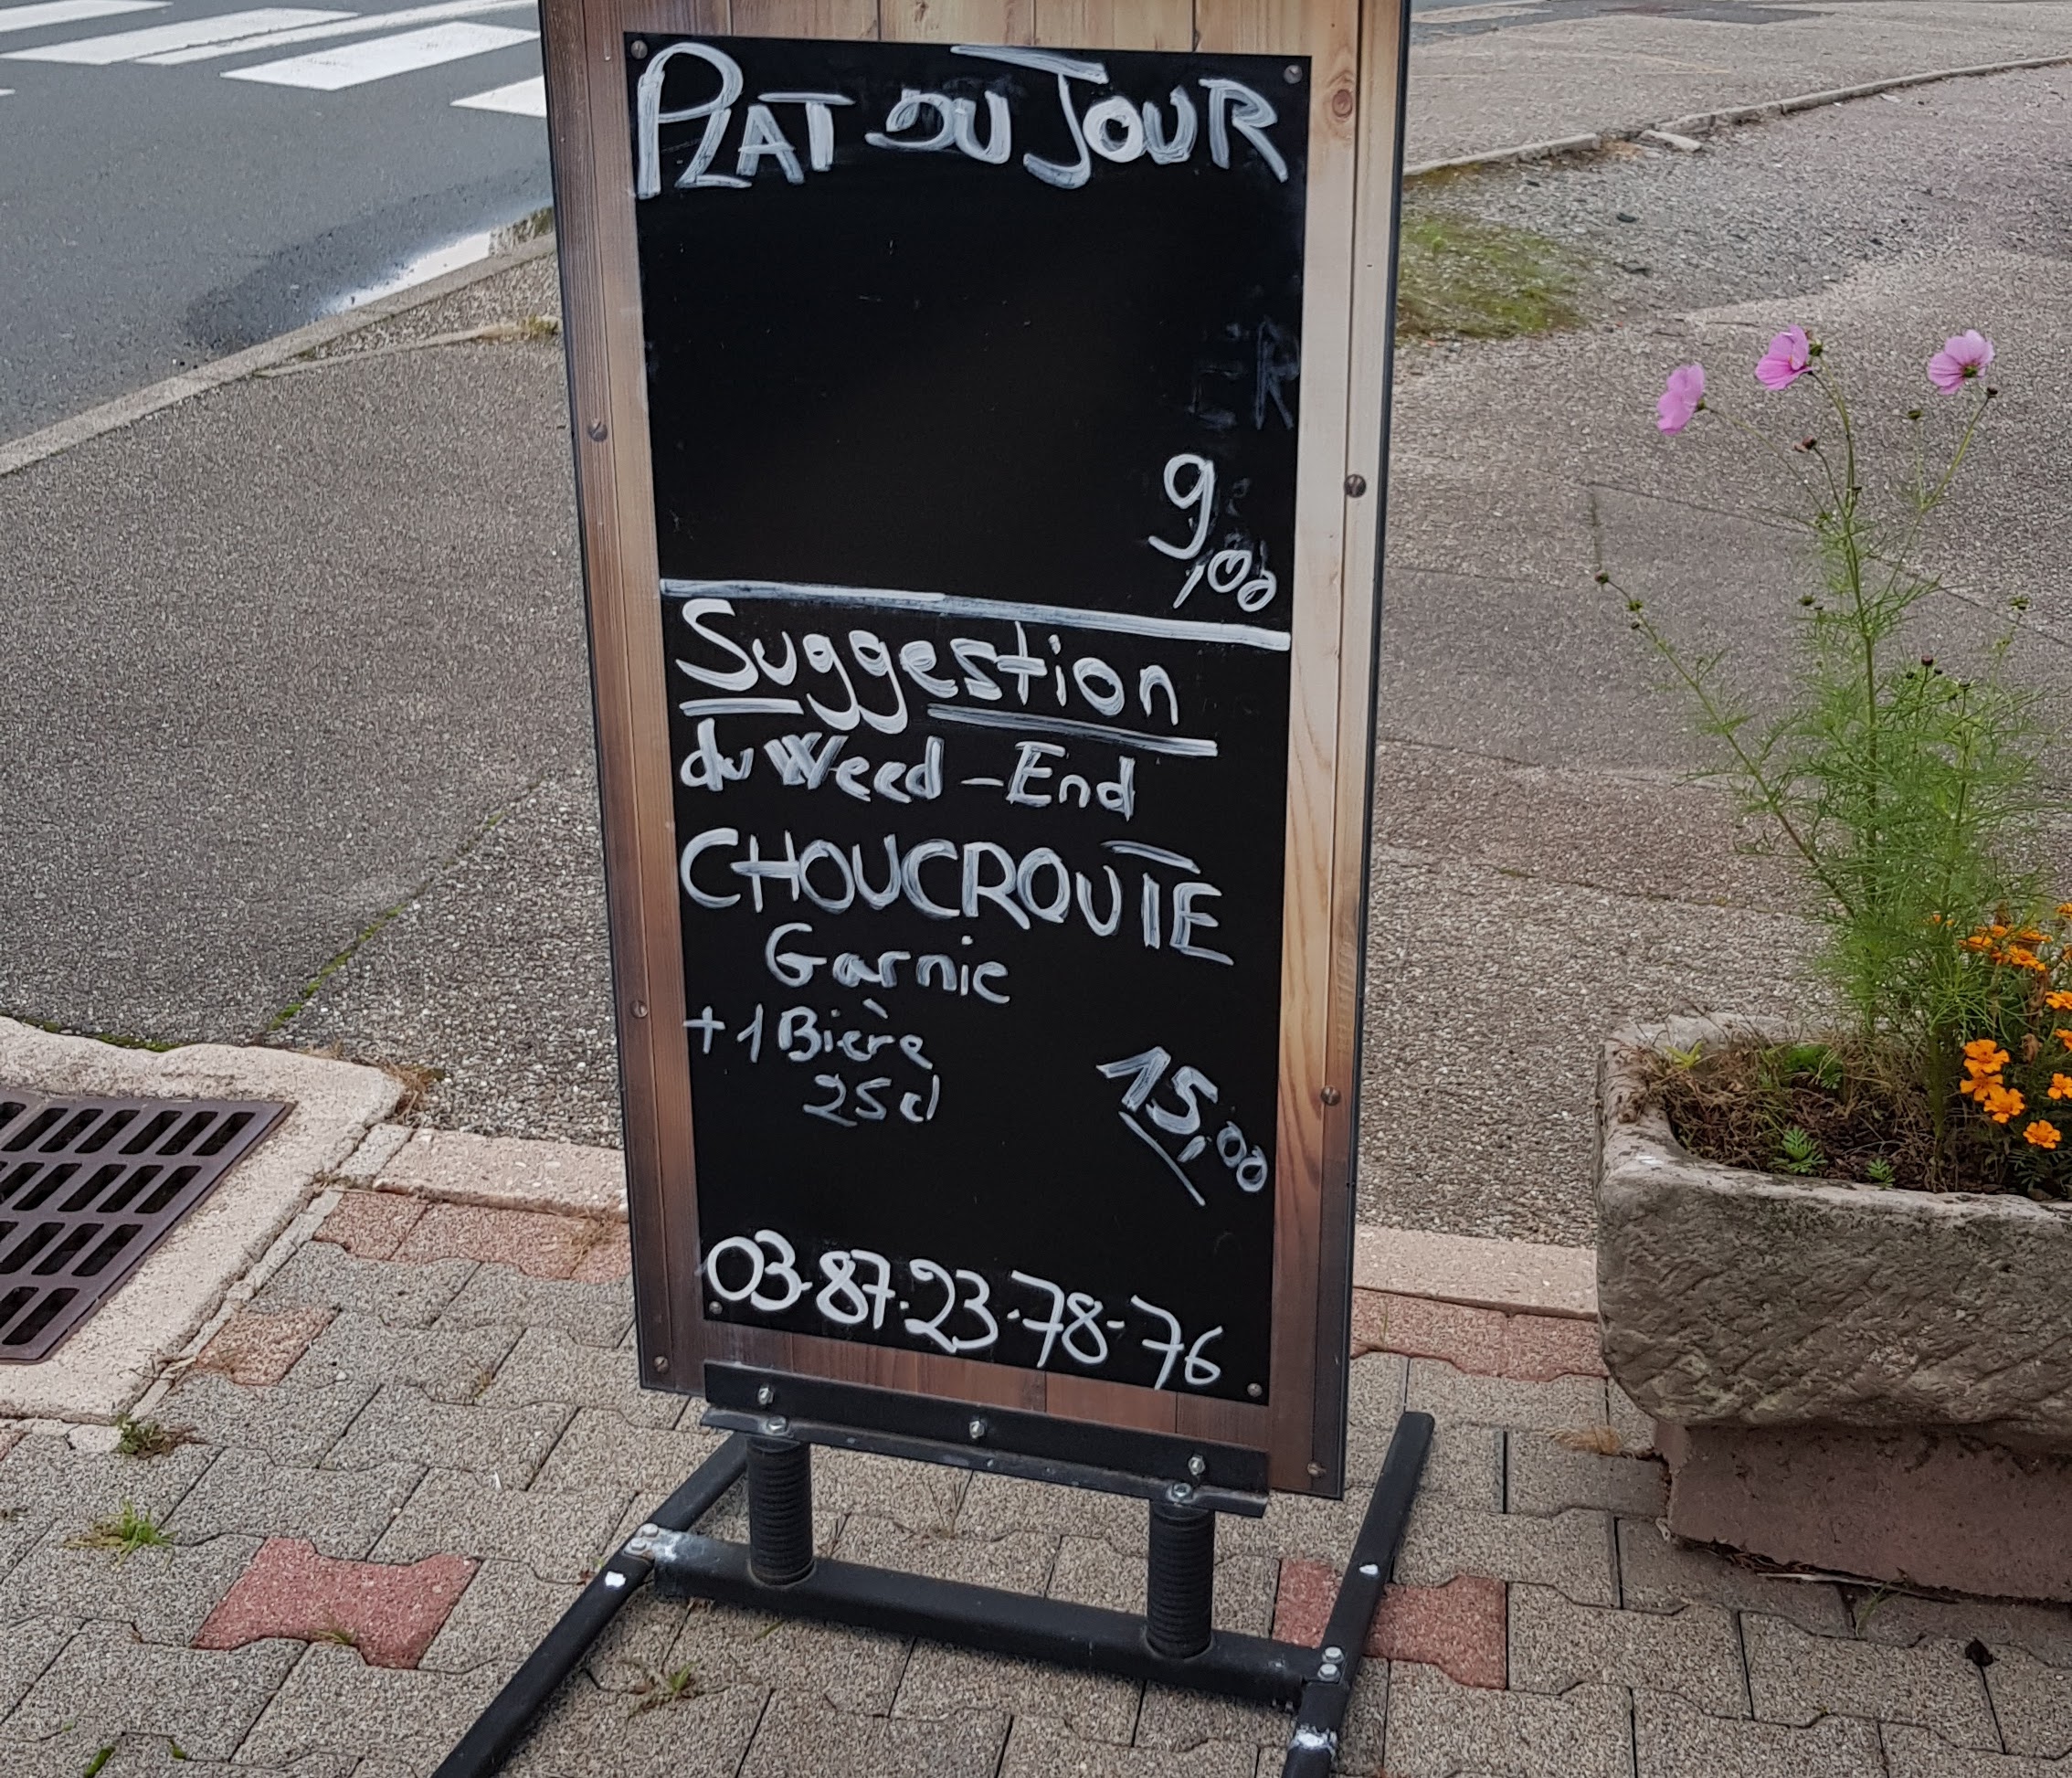 PLAT DU JOUR
9,00
Suggestion
du Weed-End
CHOUCROUTE
Garnie
+1 Bière
25cl
15,00
03.87.23.78.76